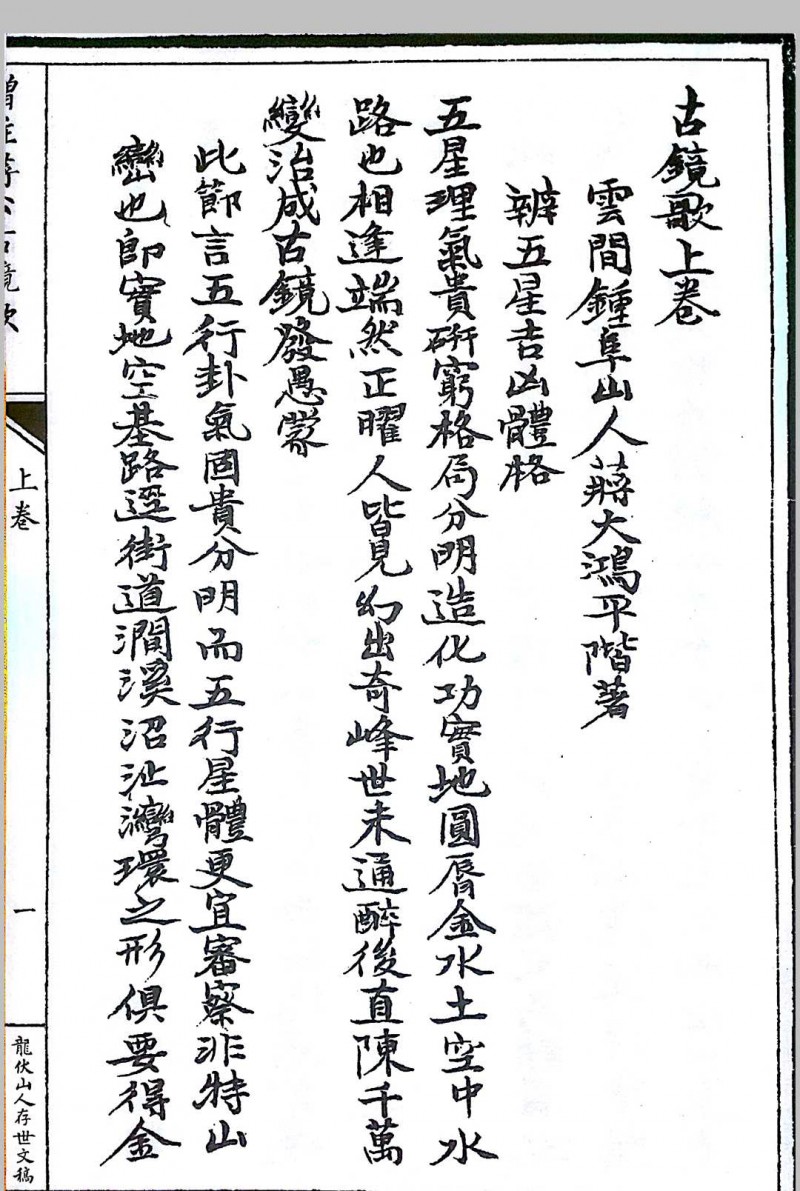 古鏡歌上卷
雲間鍾阜山人蔣大鴻平階著
辨五星吉凶體格
五星理氣貴硏窮格局分明造化功實地圓唇金水土空中水
路也相逢端然正曜人皆見幻出奇峰世未通醉後直陳千萬
變治成古鏡發愚蒙
此節言五行卦氣固貴分明而五行星體更宜審察非特山
巒也即實地空基路逕街道澗溪沼沚灣環之形俱要得金
上卷
一
龍伏山人存世文稿